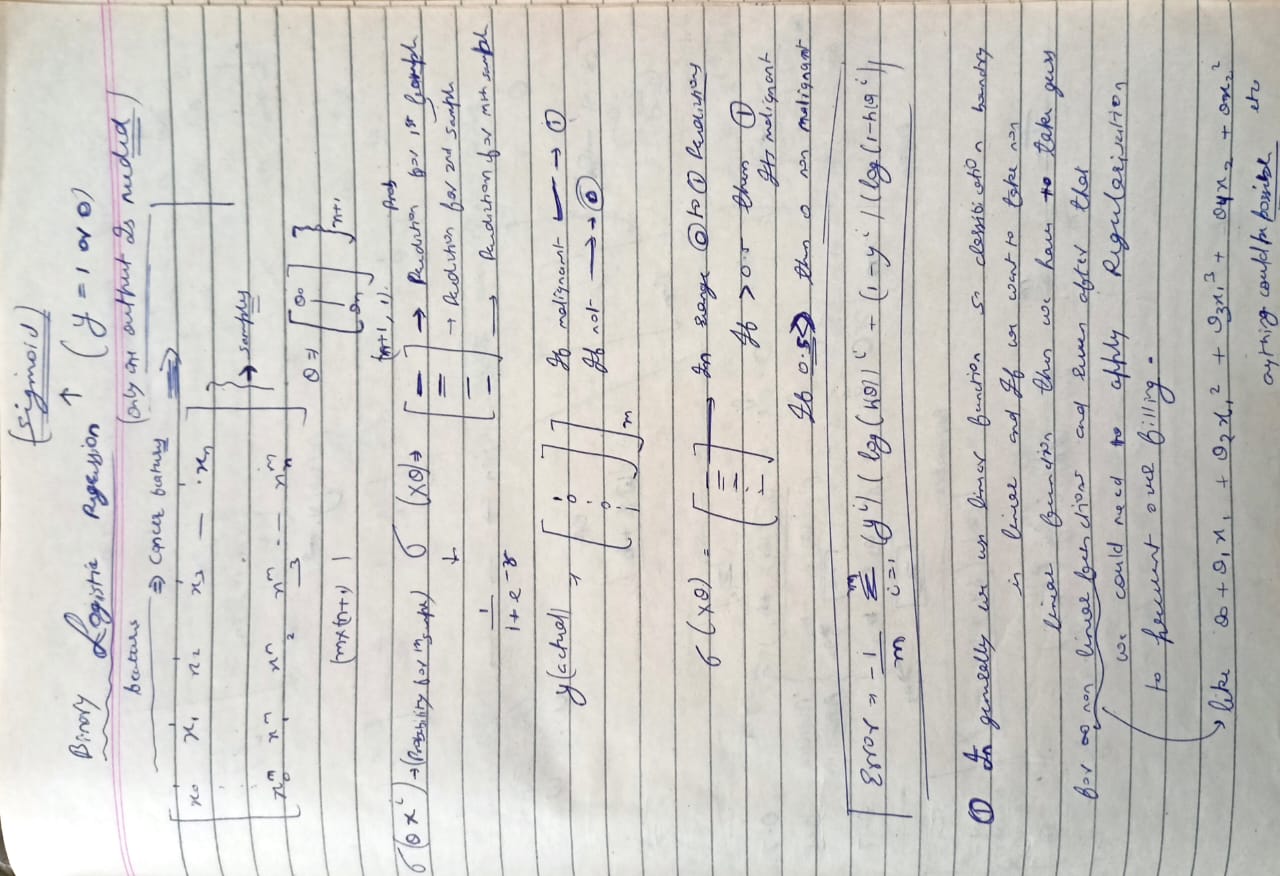 (sigmoid)
↑
Binary Logistic Regression (y = 1 or 0)
(only one output is needed)
features
⇒ cancer features ⇒
x₀ x₁ x₂ x₃ — xₙ
} → samples
x₀ᵐ x₁ᵐ x₂ᵐ x₃ᵐ -- xₙᵐ
θ ⇒ [θ₀ | θₙ] } n+1
(m×(n+1))
(n+1, 1).
Prob
σ(θxⁱ) → (Probability for iᵗʰ sample) σ (Xθ) → [ ] → Prediction for 1st sample
↓ → Prediction for 2nd sample
1/(1+e^-z) → Prediction for mth sample
y(actual) → [1 0 . 0 1]m
If malignant → ①
If not → ⓪
σ (Xθ) = [ ] → In range ⓪ to ① Predictions
If >0.5 then ①
Its malignant
If 0.5> then 0 non malignant
Error = -1/m Σ i=1 m (yⁱ) (log(hθ))ⁱ + (1-yⁱ) (log(1-h(θⁱ))
① In generally we use linear function so classification boundry
is linear and If we want to take non
linear function then we have to take guess
for ∞ non linear functions and even after that
we could need to apply Regularisation
to prevent over filling.
like θ0 + θ₁x₁ + θ₂x₁² + θ₃x₁³ + θ4x₂ + θx₂²
etc
anything could be possible